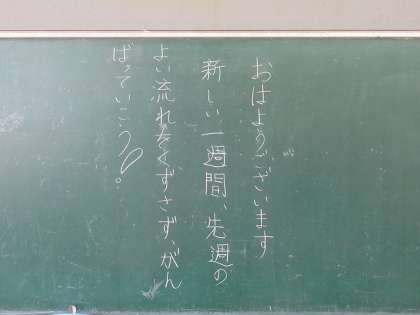 おはようございます
新しい一週間、先週の
よい流れをくずさず、がん
ばっていこう!。